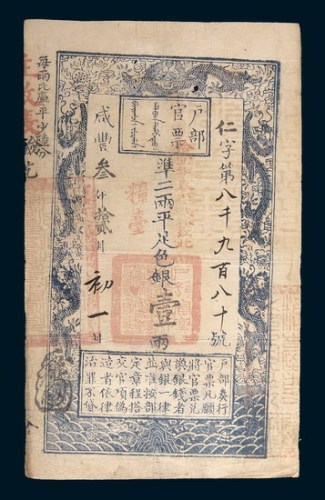 户部
官票
仁字第八千九百八十號
準二兩平足色銀壹兩
咸豐叁年拾貳月初一日
每兩比庫平少陸分
户部奏行
官票凡願
將官票兌
換銀錢者
與銀一律
並准按部
定章程搭
交官項偽
造者依律
治罪不貸